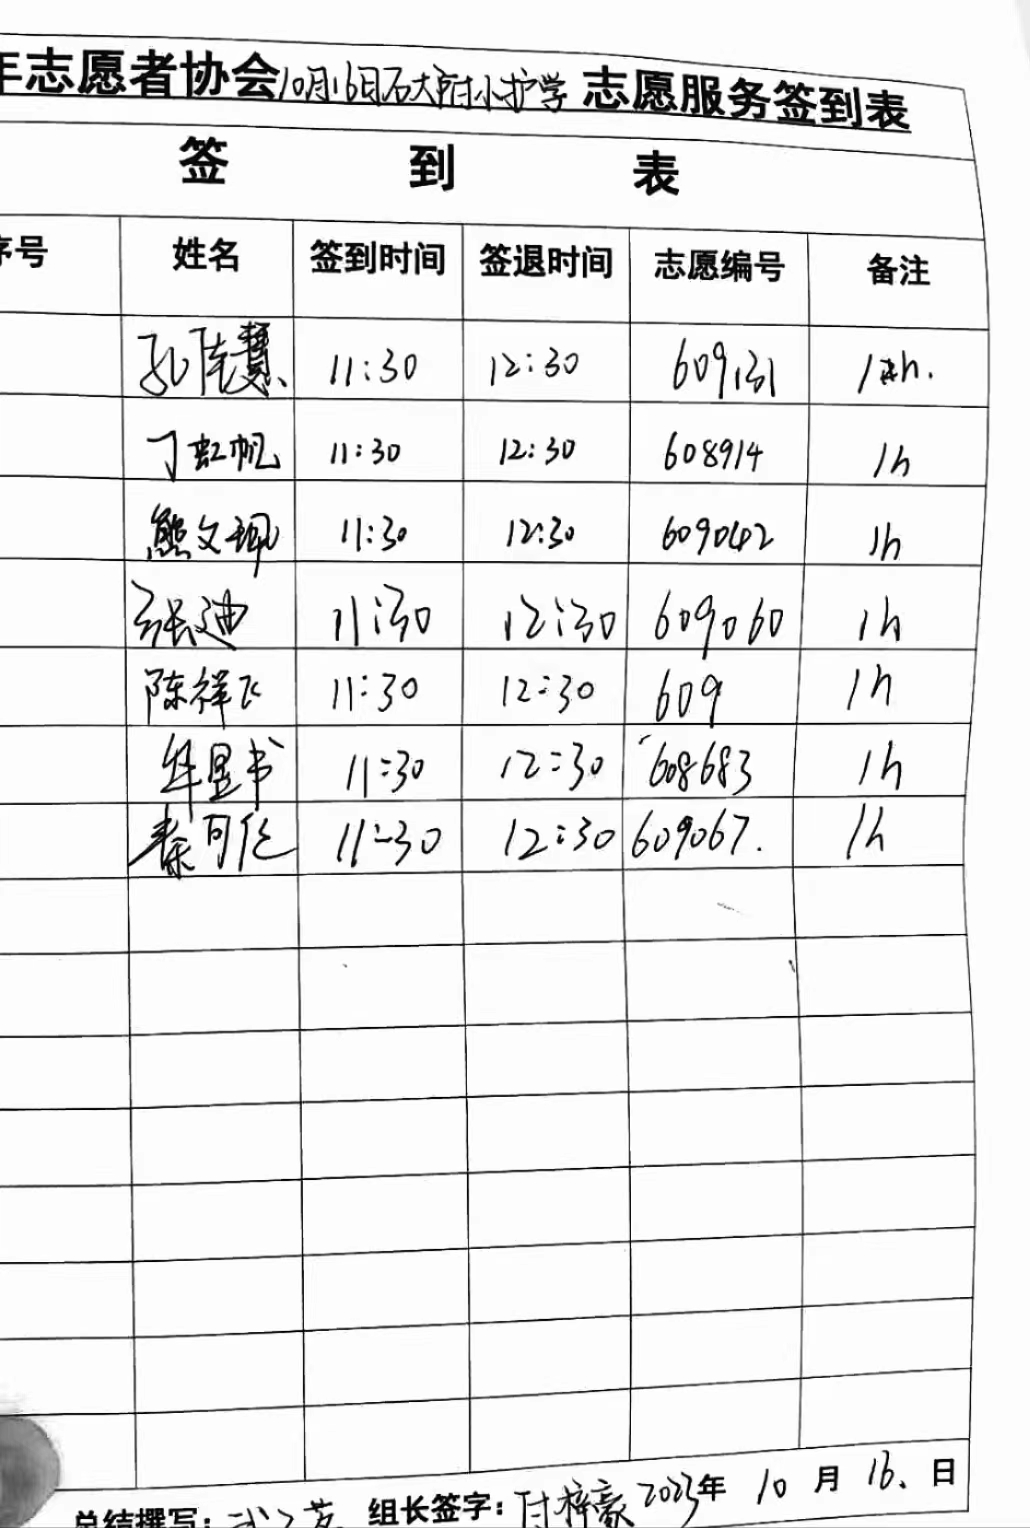 年志愿者协会10月16日石大附小护学志愿服务签到表
签 到 表
序号 姓名 签到时间 签退时间 志愿编号 备注
孔陆慧 11:30 12:30 609131 1h.
丁虹帆 11:30 12:30 608914 1h
熊文珮 11:30 12:30 609042 1h
张迪 11:30 12:30 609060 1h
陈祥飞 11:30 12:30 609 1h
华昱书 11:30 12:30 608683 1h
秦可伦 11:30 12:30 609067. 1h
总结撰写: 组长签字: 付梓豪 2023年 10月16.日